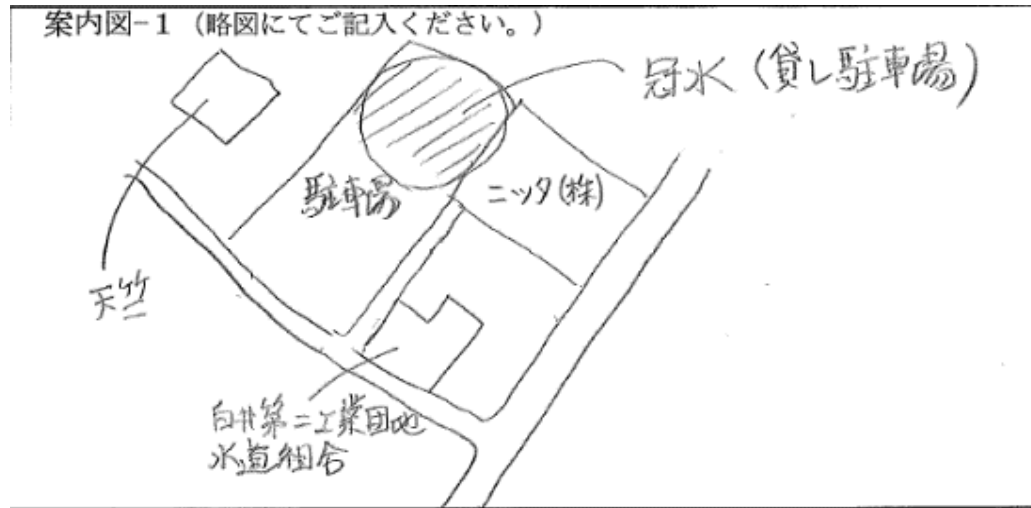 案内図-1 (略図にてご記入ください。)
冠水(貸し駐車場)
駐車場
ニッタ(株)
天竺
白井第二工業団地
水道組合